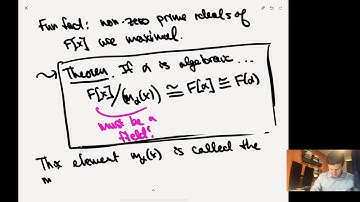 Fun fact: non-zero prime ideals of
F[x] are maximal.
Theorem. If α is algebraic...
F[x]/(m_α(x)) ≅ F[α] ≅ F(α)
must be a
field!
This element m_α(x) is called the
m